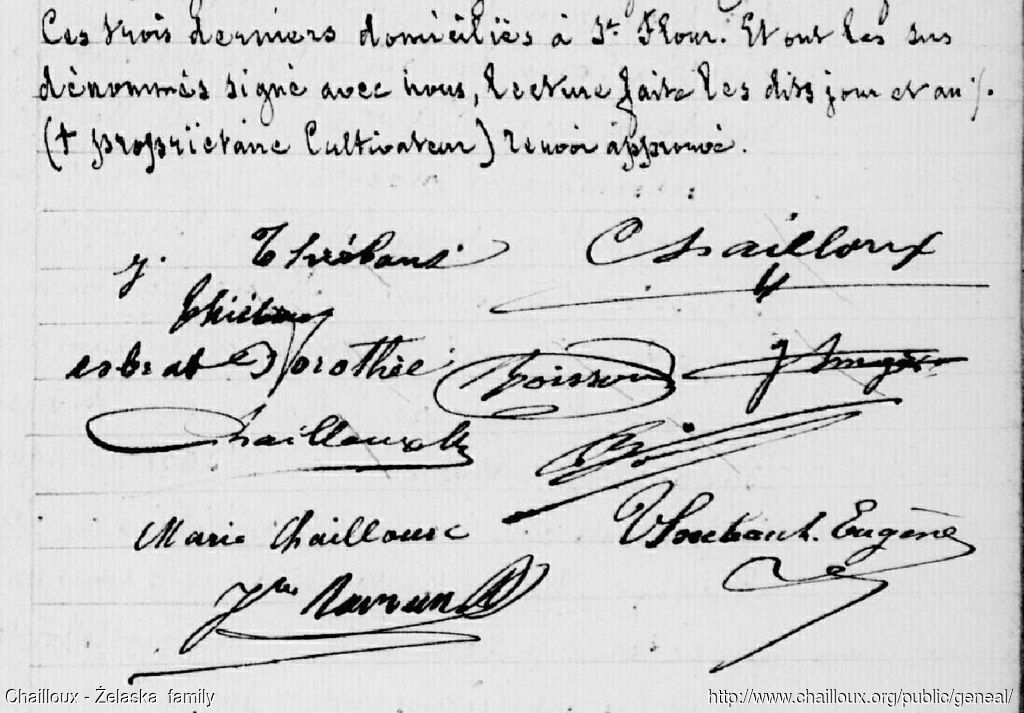 Ces trois derniers domiciliés à St Flour. Et ont les sus
dénommés signé avec nous, lecture faite les dits jour et an %.
(+ propriétaire Cultivateur) renvoi approuvé.
Chailloux
Dorothée
Poisson
Chailloux
Marie Chailloux
Eugène
Chailloux - Želaska family
http://www.chailloux.org/public/geneal/